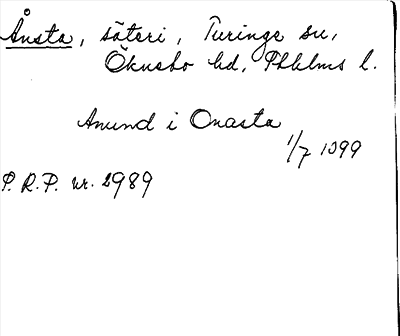 Ånsta, säteri, Turinge sn,
Öknebo hd, Sthlms l.
Anund i Onasta
1/7 1399
P.R.P. nr. 2989